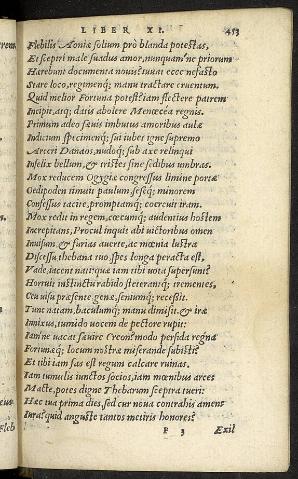 LIBER XI.
453
Flebilis Aoniæ solium prò blanda potestas,
Et sceptri male suadus amor, nunquam'ne priorum
Hærebunt documenta nouis? iuuat ecce nefasto
Stare loco, regimenq; manu tractare cruentum.
Quid melior Fortuna potest? iam flectere patrem
Incipit, atq; datis abolere Menœcea regnis.
Primum adeo sæuis imbutus amoribus aulæ
Indicium specimenq; sui iubet igne supremo
Arceri Danaos, nudoq; sub axe relinqui
Infelix bellum, & tristes sine sedibus umbras.
Mox reducem Ogygiæ congressus limine portæ
Oedipoden timuit paulum, seseq; minorem
Confessus tacite, promptamq; coercuit iram.
Mox redit in regem, cæcumq; audentius hostem
Increpitans, Procul inquit abi uictoribus omen
Inuisum, & furias auerte, ac mœnia lustra
Discessu, thebana tuo, spes longa peracta est,
Vade, iacent nati: quæ iam tibi uota supersunt?
Horruit instinctu rabido steterantq; trementes,
Ceu uisu præsente genæ, seniumq; recessit.
Tunc natam, baculumq; manu dimisit, & iræ
Innixus, tumido uocem de pectore rupit:
Iam'ne uacat sæuire Creon? modo perfida regna
Fortunæq; locum nostræ miserande subisti?
Et tibi iam fas est regum calcare ruinas.
Iam tumulis iunctos socios, iam mœnibus arces
Macte, potes digne Thebarum sceptra tueri:
Hæc tua prima dies, sed cur noua contrahis amens
Iura? quid anguste tantos metiris honores?
P 3 Exil